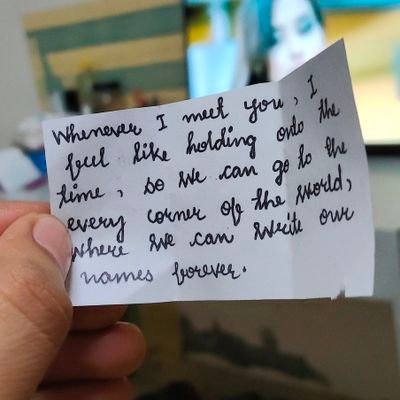 Whenever I meet you, I
feel like holding onto the
time, so we can go to the
every corner of the world,
where we can write our
names forever.